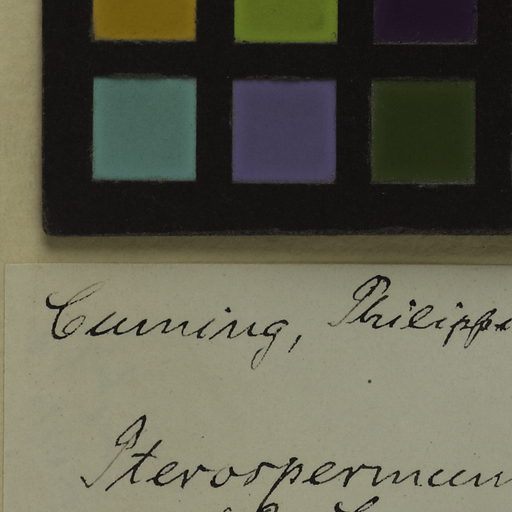 Cuming, Philipp
Pterospermum